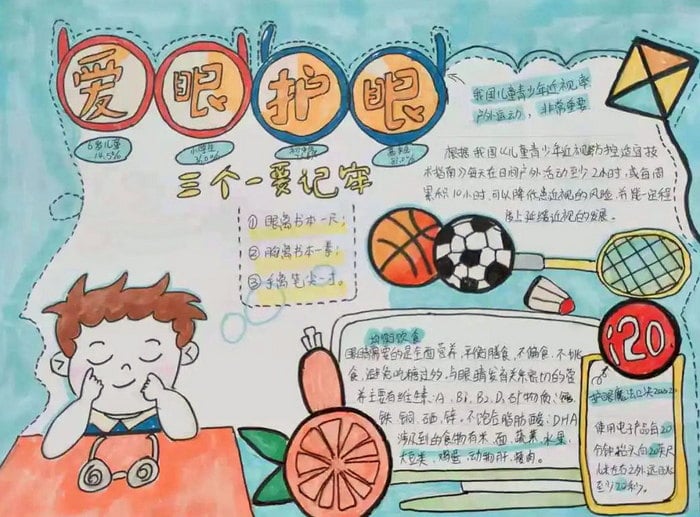 爱眼护眼
6岁儿童
14.5%
小学生
36.0%
初中生
高中生
81.0%
三个一要记牢
① 眼离书本一尺；
② 胸离书本一拳；
③ 手离笔尖一寸。
我国儿童青少年近视率
户外运动，非常重要
根据我国《儿童青少年近视防控适宜技
术指南》每天在日间户外活动至少2小时，或每周
累积10小时，可以降低患近视的风险，并能一定程
度上延缓近视的发展。
均衡饮食
眼睛需要的是全面营养，平衡膳食，不偏食，不挑
食，避免吃糖过多，与眼睛发育关系密切的营
养主要有维生素：A、B1、B2、D、E矿物质：
铁、铜、硒、锌，不饱合脂肪酸：DHA
涉及到的食物有米、面、蔬菜、水果、
大豆类、鸡蛋、动物肝、瘦肉。
120
护眼魔法口诀20-20-20
使用电子产品自20
分钟抬头向20英尺
以外远处
至少20秒。